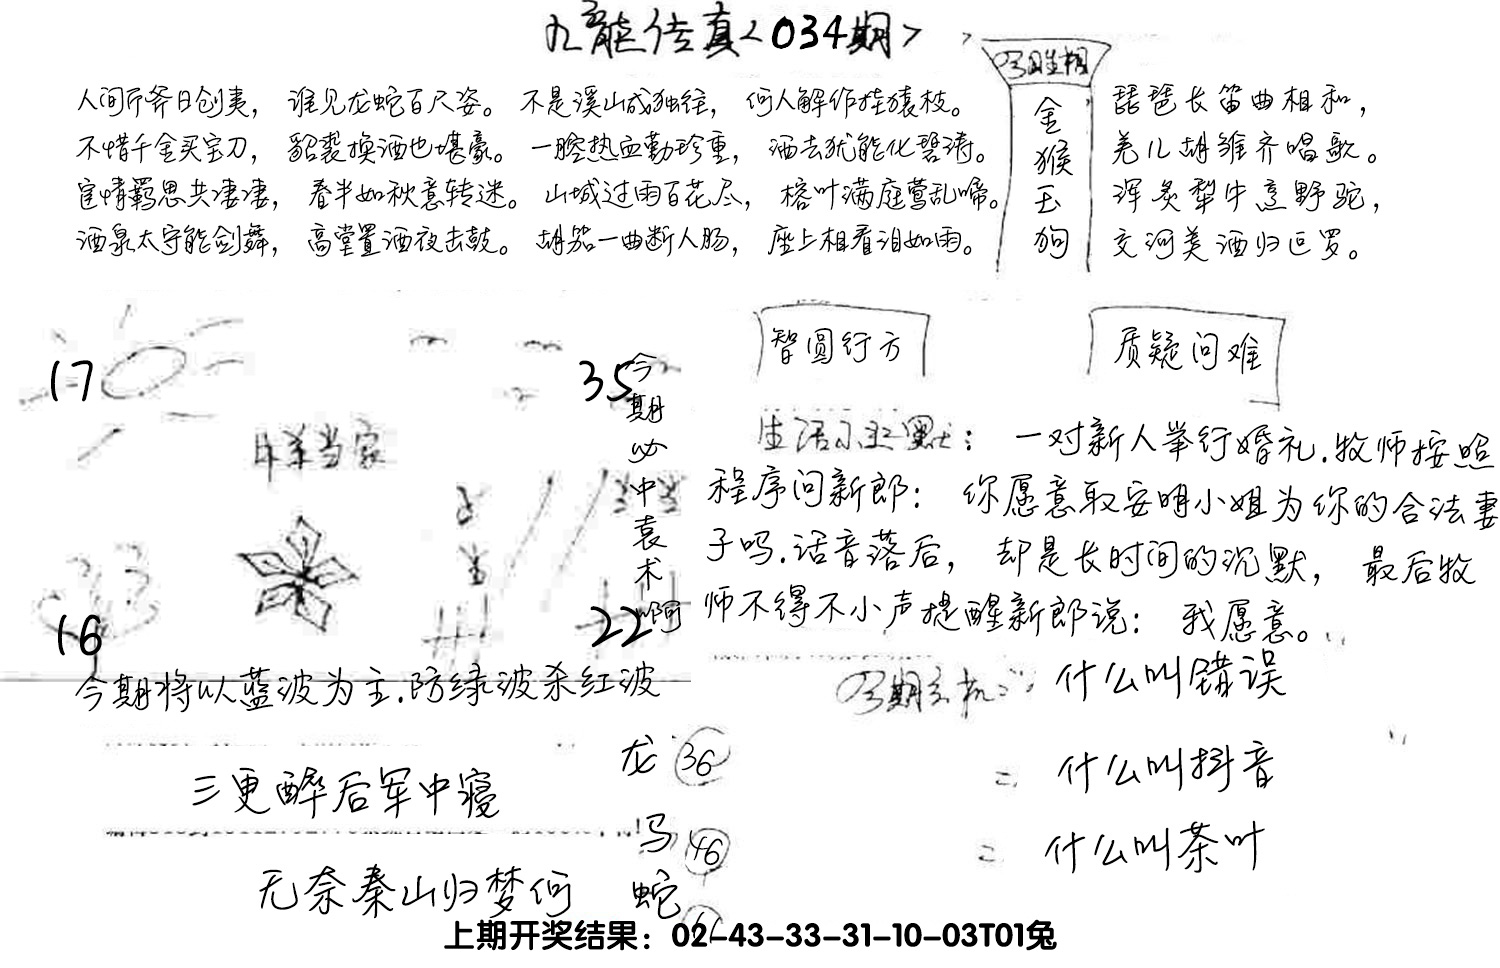 九龙传真<034期>
今期生相
金猴玉狗
人间斤斧日创夷， 谁见龙蛇百尺姿。 不是溪山成独往， 何人解作挂猿枝。
不惜千金买宝刀， 貂裘换酒也堪豪。 一腔热血勤珍重， 洒去犹能化碧涛。
宦情羁思共凄凄， 春半如秋意转迷。 山城过雨百花尽， 榕叶满庭莺乱啼。
酒泉太守能剑舞， 高堂置酒夜击鼓。 胡笳一曲断人肠， 座上相看泪如雨。
琵琶长笛曲相和，
羌儿胡雏齐唱歌。
浑炙犁牛烹野驼，
交河美酒归叵罗。
17
35
16
22
羊当家
今期必中袁术啊
今期将以蓝波为主.防绿波杀红波
智圆行方
质疑问难
生活幽默： 一对新人举行婚礼.牧师按照
程序问新郎： 你愿意取安明小姐为你的合法妻
子吗.话音落后， 却是长时间的沉默， 最后牧
师不得不小声提醒新郎说： 我愿意。
今期玄机： 什么叫错误
= 什么叫抖音
= 什么叫茶叶
三更醉后军中寝
无奈秦山归梦何
龙 36
马 46
蛇
上期开奖结果：02-43-33-31-10-03T01兔